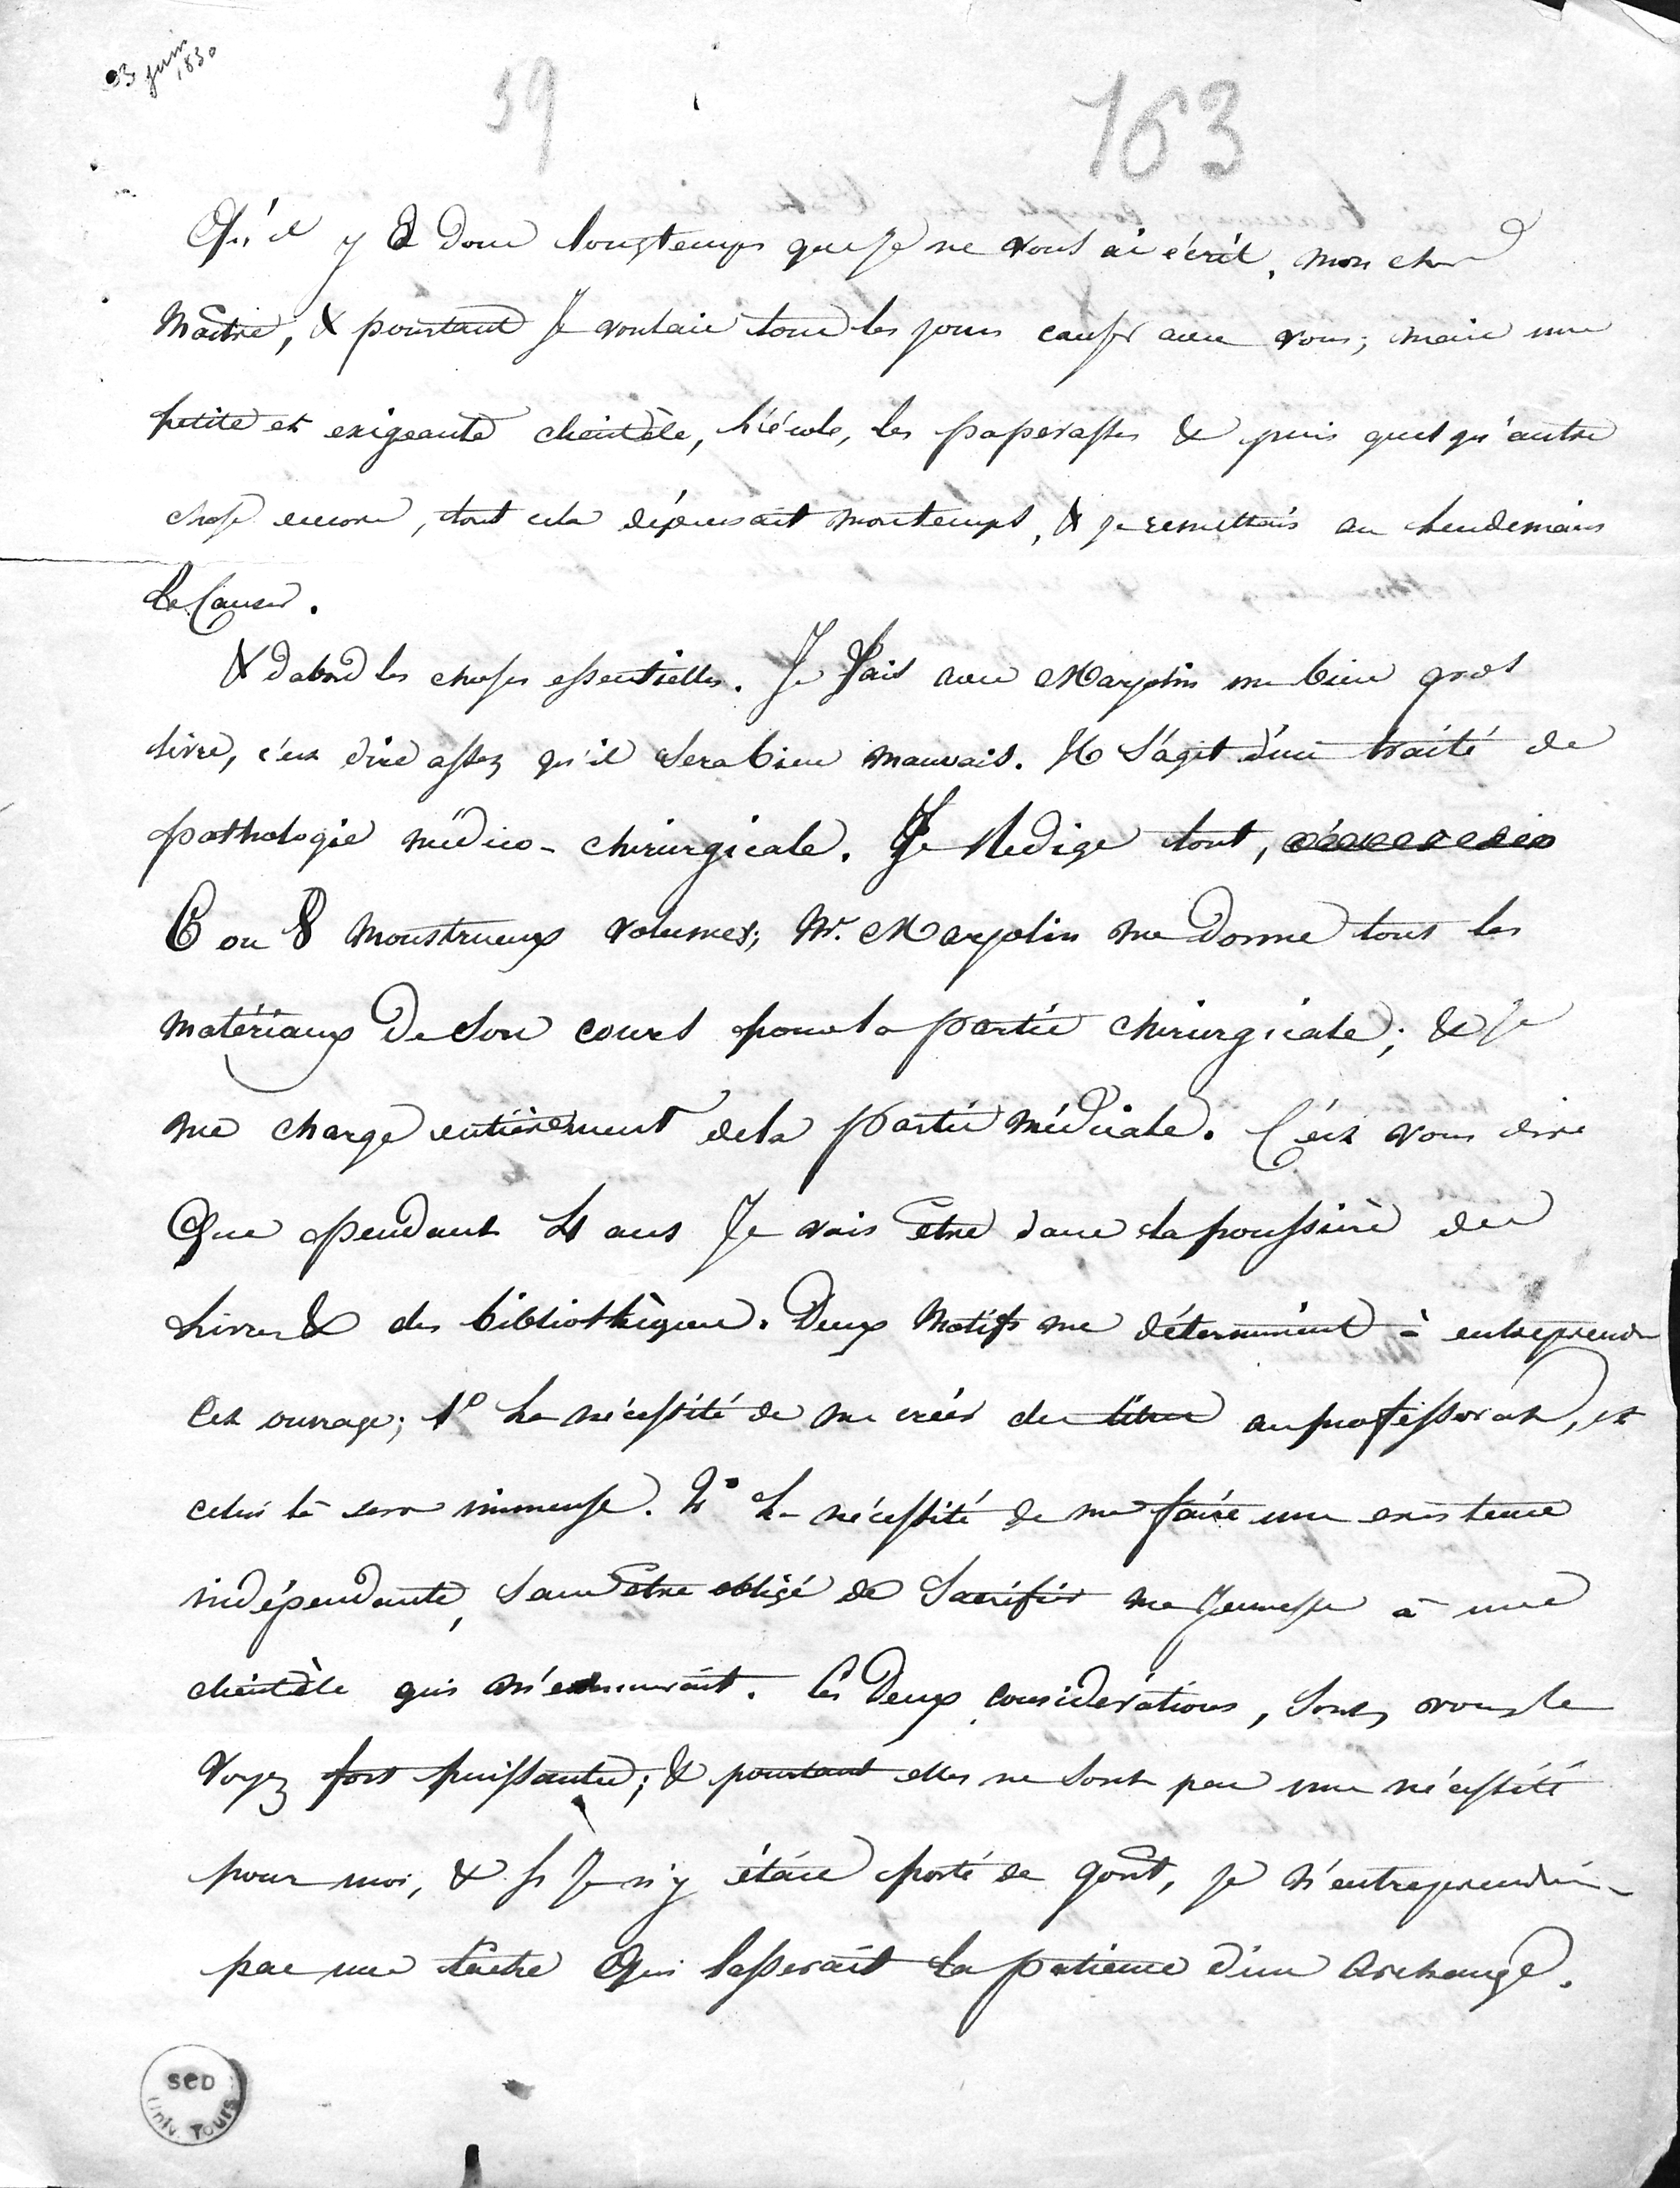 03 juin
1830
59
163
Qu'il y a donc longtemps que je ne vous ai écrit, mon cher
Maitre, & pourtant Je voulais tous les jours causer avec vous; mais une
petite et exigeante clientèle, l'école, les paperasses & puis quelqu'autre
chose encore, tout cela dépensait mon temps, & je remettais au lendemain
le causer.
& dabord les choses essentielles. Je fais avec Marjolin un bien gros
livre, c'est dire assez qu'il sera bien mauvais. Il s'agit d'un traité de
pathologie médico-chirurgicale. Je Redige tout,
6 ou 8 monstrueux volumes; Mr. Marjolin me donne tous les
matériaux de son cours pour la partie chirurgicale; & je
me charge entièrement de la partie médicale. C'est vous dire
Que pendant 4 ans Je vais être dans la poussière des
livres & des bibliothèques. Deux Motifs me déterminent à entreprendre
cet ouvrage; 1º La nécessité de me créer des titres au professorat, et
celui là sera immense. 2º La nécessité de me faire une existence
indépendante, sans être obligé de Sacrifier ma Jeunesse à une
clientèle qui m'ennuirait. Ces Deux considérations, sont, vous le
voyez fort puissantes; & pourtant elles ne sont pas une nécessité
pour moi, & si Je n'y étais porté de goût, je n'entreprendrais
pas une tache Qui lasserait la patience d'un Archange.
SCD
Univ. Tours